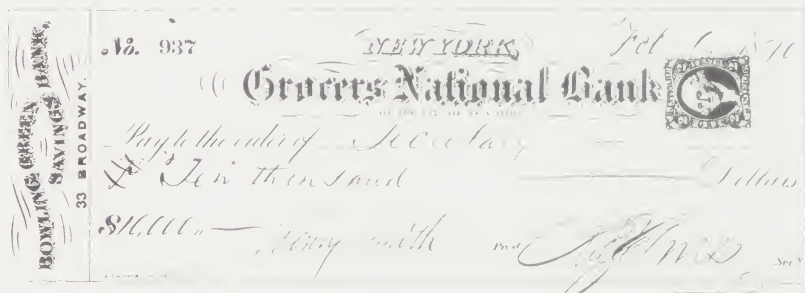 BOWLING GREEN
SAVINGS BANK.
33 BROADWAY.
No. 937
NEW YORK,
Grocers National Bank
Pay to the order of Secretary
Ten thousand Dollars
Henry Smith Prest
Secy